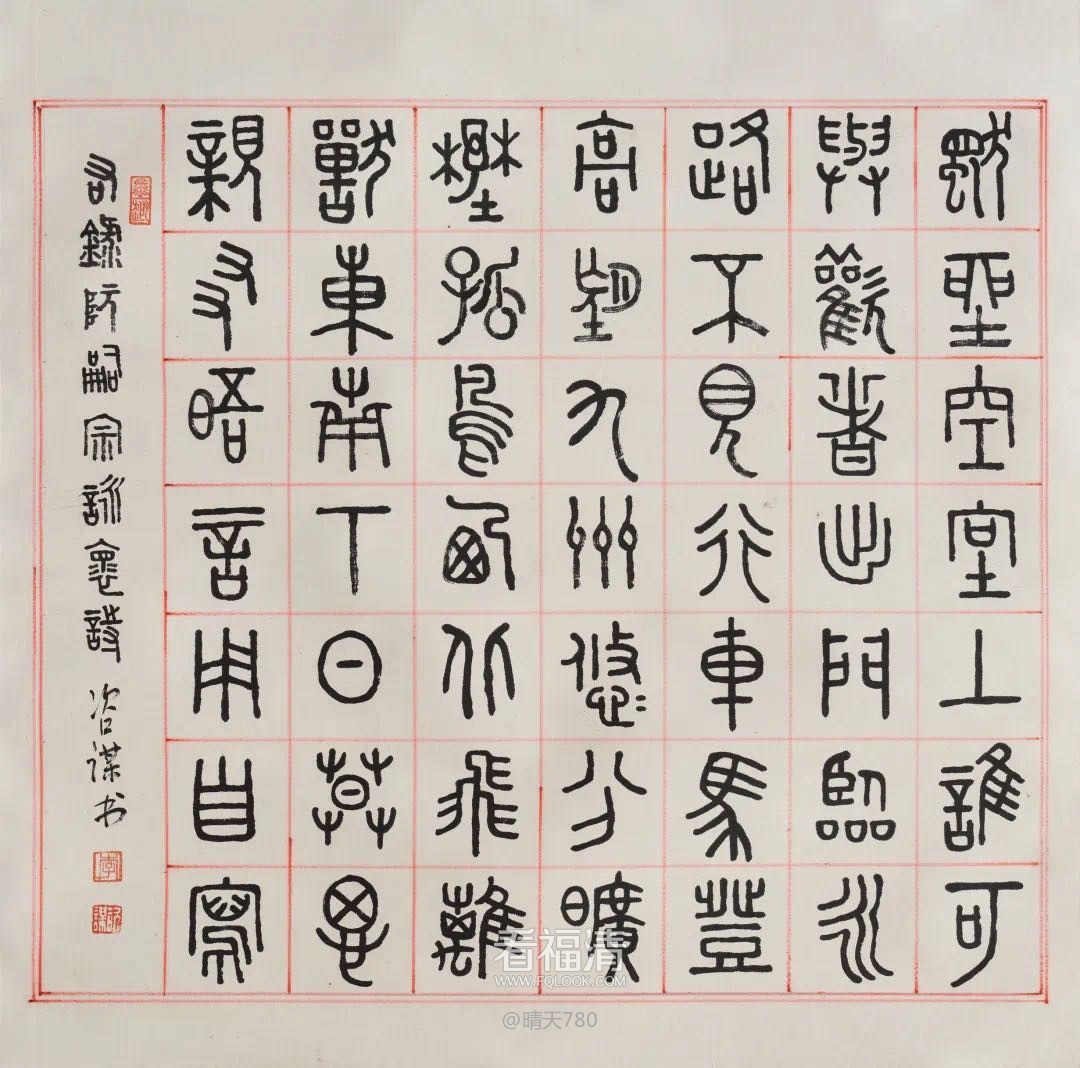 獨坐空堂上誰可
與歡者出門臨永
路不見行車馬登
高望九州悠〻分曠
壄孤鳥西北飛離
獸東南下日莫思
親友晤言用自寫
右錄阮嗣宗詠懷詩 治謀书
看福清
WWW.FQLOOK.COM
@晴天780